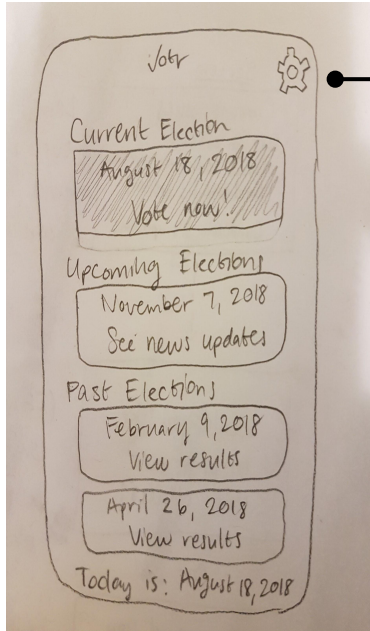 iVotr
Current Election
August 18, 2018
Vote now!
Upcoming Elections
November 7, 2018
See news updates
Past Elections
February 9, 2018
View results
April 26, 2018
View results
Today is: August 18, 2018